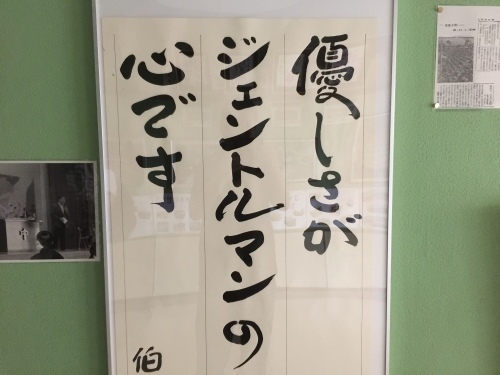 優しさが
ジェントルマンの
心です
伯